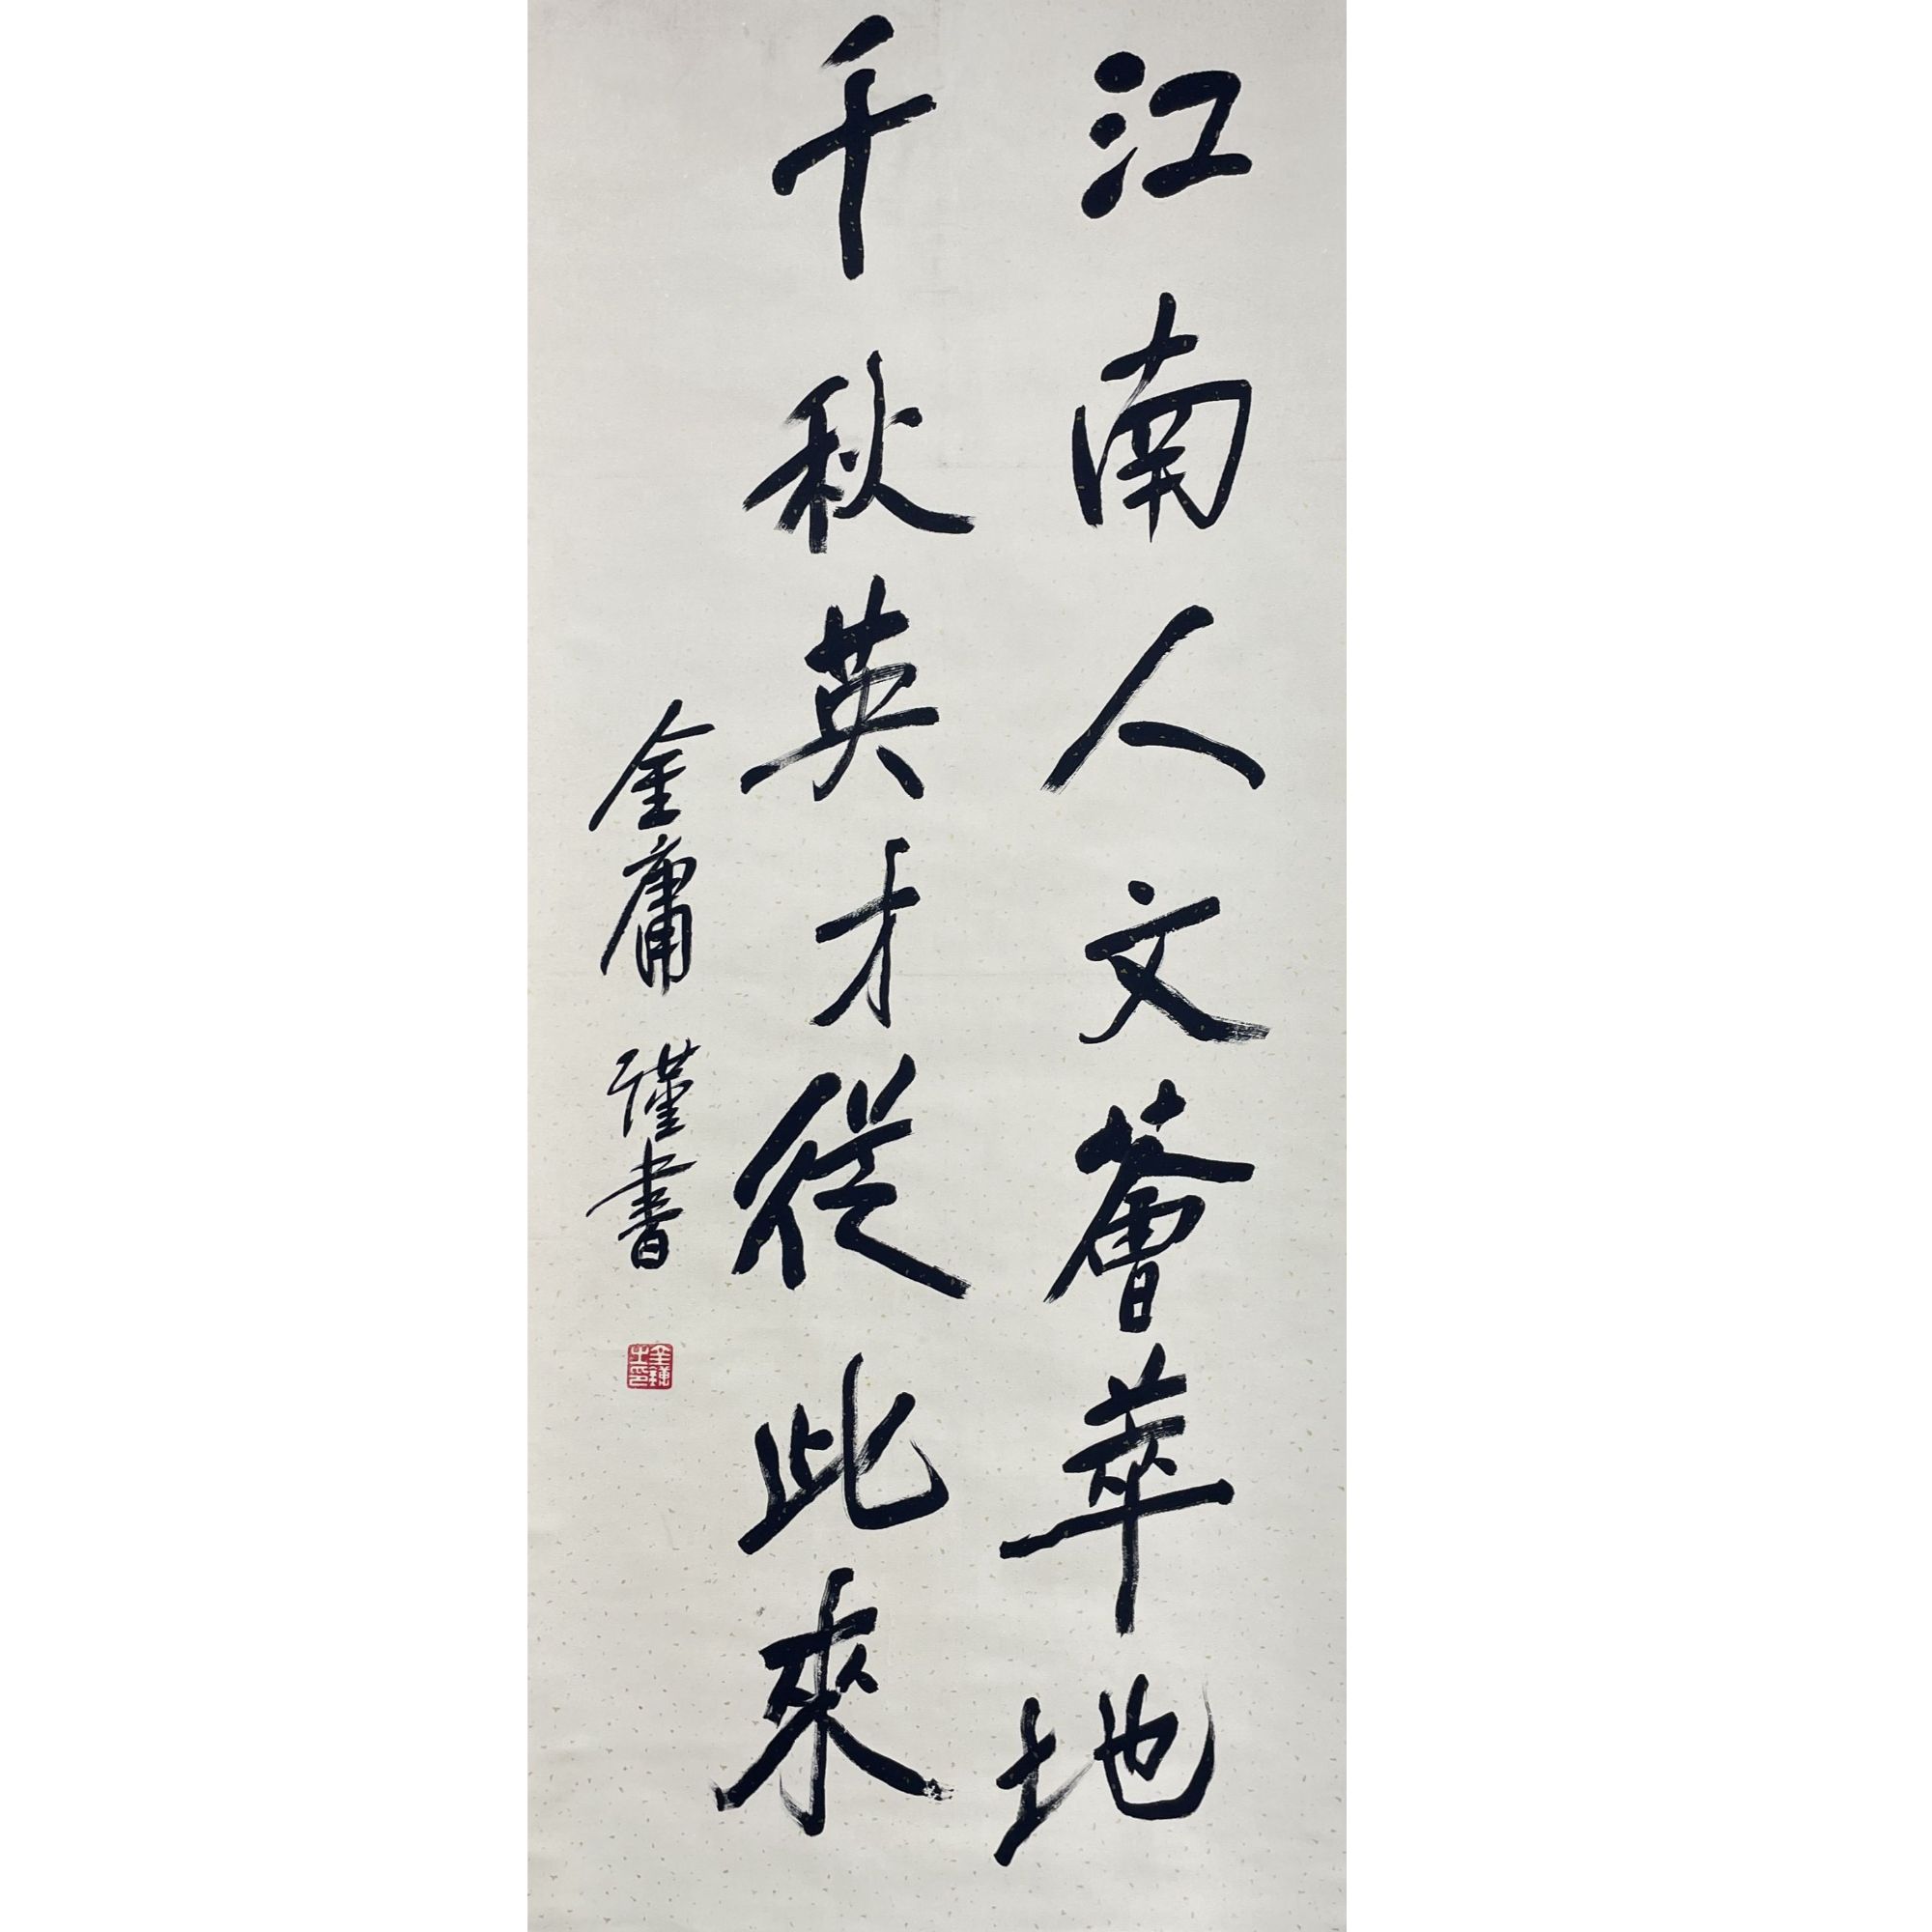 江南人文薈萃地
千秋英才從此來
金庸謹書